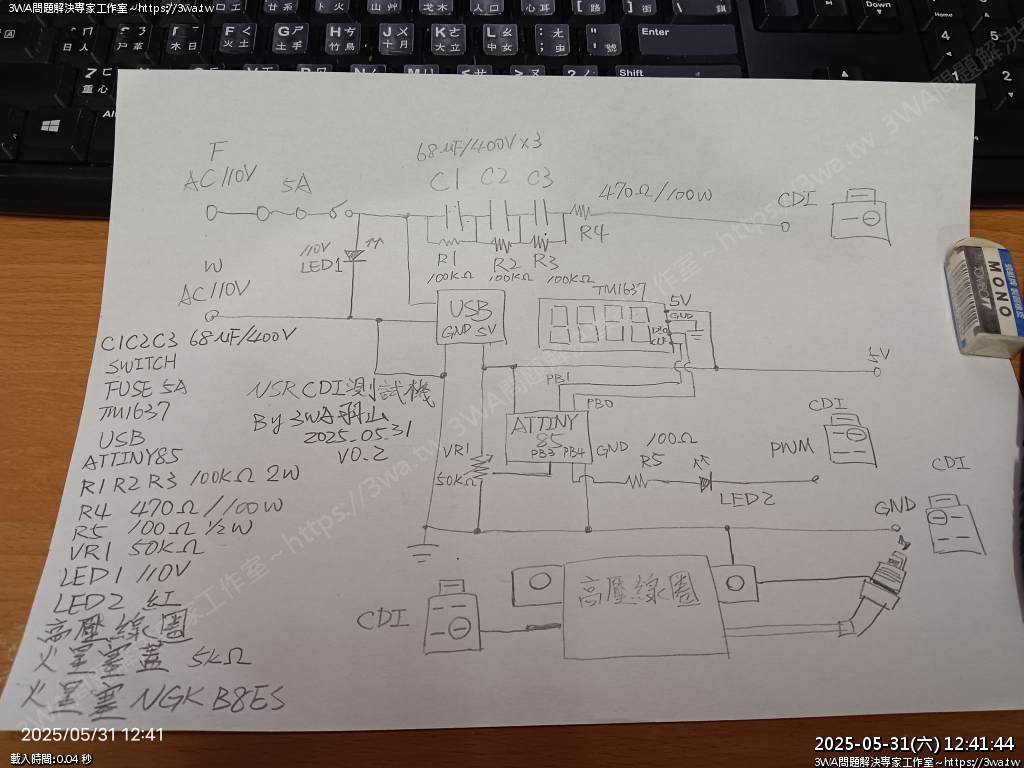 3WA問題解決專家工作室~https://3wa.tw
F
AC 110V
5A
68uF/400V x3
C1 C2 C3
470Ω/100W
R4
CDI
110V
LED1
R1 R2 R3
100KΩ 100KΩ 100KΩ
W
AC 110V
USB
GND 5V
TM1637
5V
GND
DIO
CLK
5V
C1C2C3 68uF/400V
SWITCH
FUSE 5A
TM1637
USB
ATTINY85
R1 R2 R3 100KΩ 2W
R4 470Ω/100W
R5 100Ω 1/2W
VR1 50KΩ
LED1 110V
LED2 紅
高壓線圈
火星塞蓋 5KΩ
火星塞 NGK B8ES
NSR CDI測試機
By 3WA羽山
2025.05.31
V0.2
PB1
PB0
ATTINY
85
PB3 PB4
GND
VR1
50KΩ
100Ω
R5
LED2
PWM
CDI
CDI
GND
CDI
高壓線圈
MONO
Enter
Shift
Home
Down
Alt
2025/05/31 12:41
載入時間:0.04 秒
2025-05-31(六) 12:41:44
3WA問題解決專家工作室~https://3wa.tw